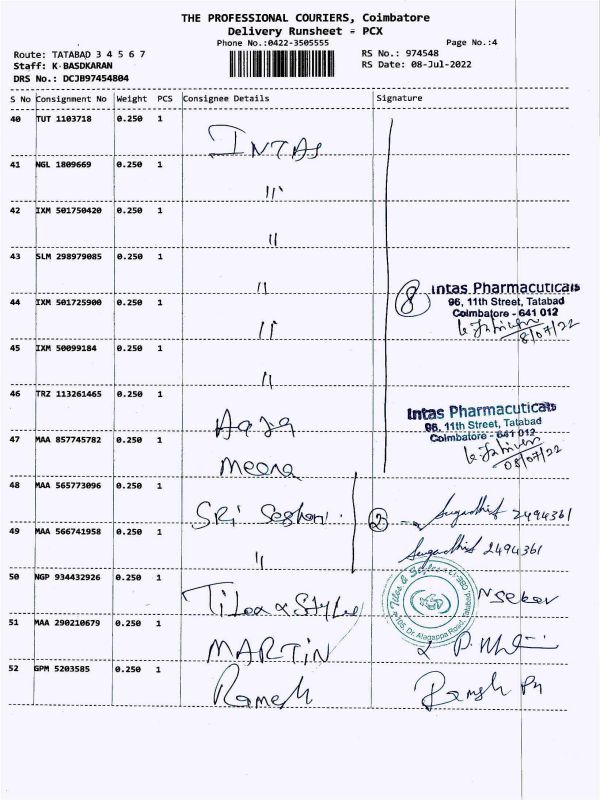 THE PROFESSIONAL COURIERS, Coimbatore
Delivery Runsheet = PCX
Phone No.:0422-3505555
Page No.:4
Route: TATABAD 3 4 5 6 7
RS No.: 974548
Staff: K BASDKARAN
RS Date: 08-Jul-2022
DRS No.: DCJB97454804
S No Consignment No Weight PCS Consignee Details Signature
40 TUT 1103718 0.250 1
INTAS
41 NGL 1809669 0.250 1
"
42 IXM 501750420 0.250 1
"
43 SLM 298979085 0.250 1
"
8 Intas Pharmacuticals
96, 11th Street, Tatabad
Coimbatore - 641 012
44 IXM 501725900 0.250 1
"
8/07/22
45 IXM 50099184 0.250 1
"
46 TRZ 113261465 0.250 1
Intas Pharmacuticals
96, 11th Street, Tatabad
Coimbatore - 641 012
47 MAA 857745782 0.250 1
08/07/22
Meena
48 MAA 565773096 0.250 1
SRi
2 2494361
49 MAA 566741958 0.250 1
" 2494361
50 NGP 934432926 0.250 1
Tiles & Styles
105, Dr. Alagappa Road, Tatabad
N Sekar
51 MAA 290210679 0.250 1
MARTIN
52 GPM 5203585 0.250 1
Ramesh